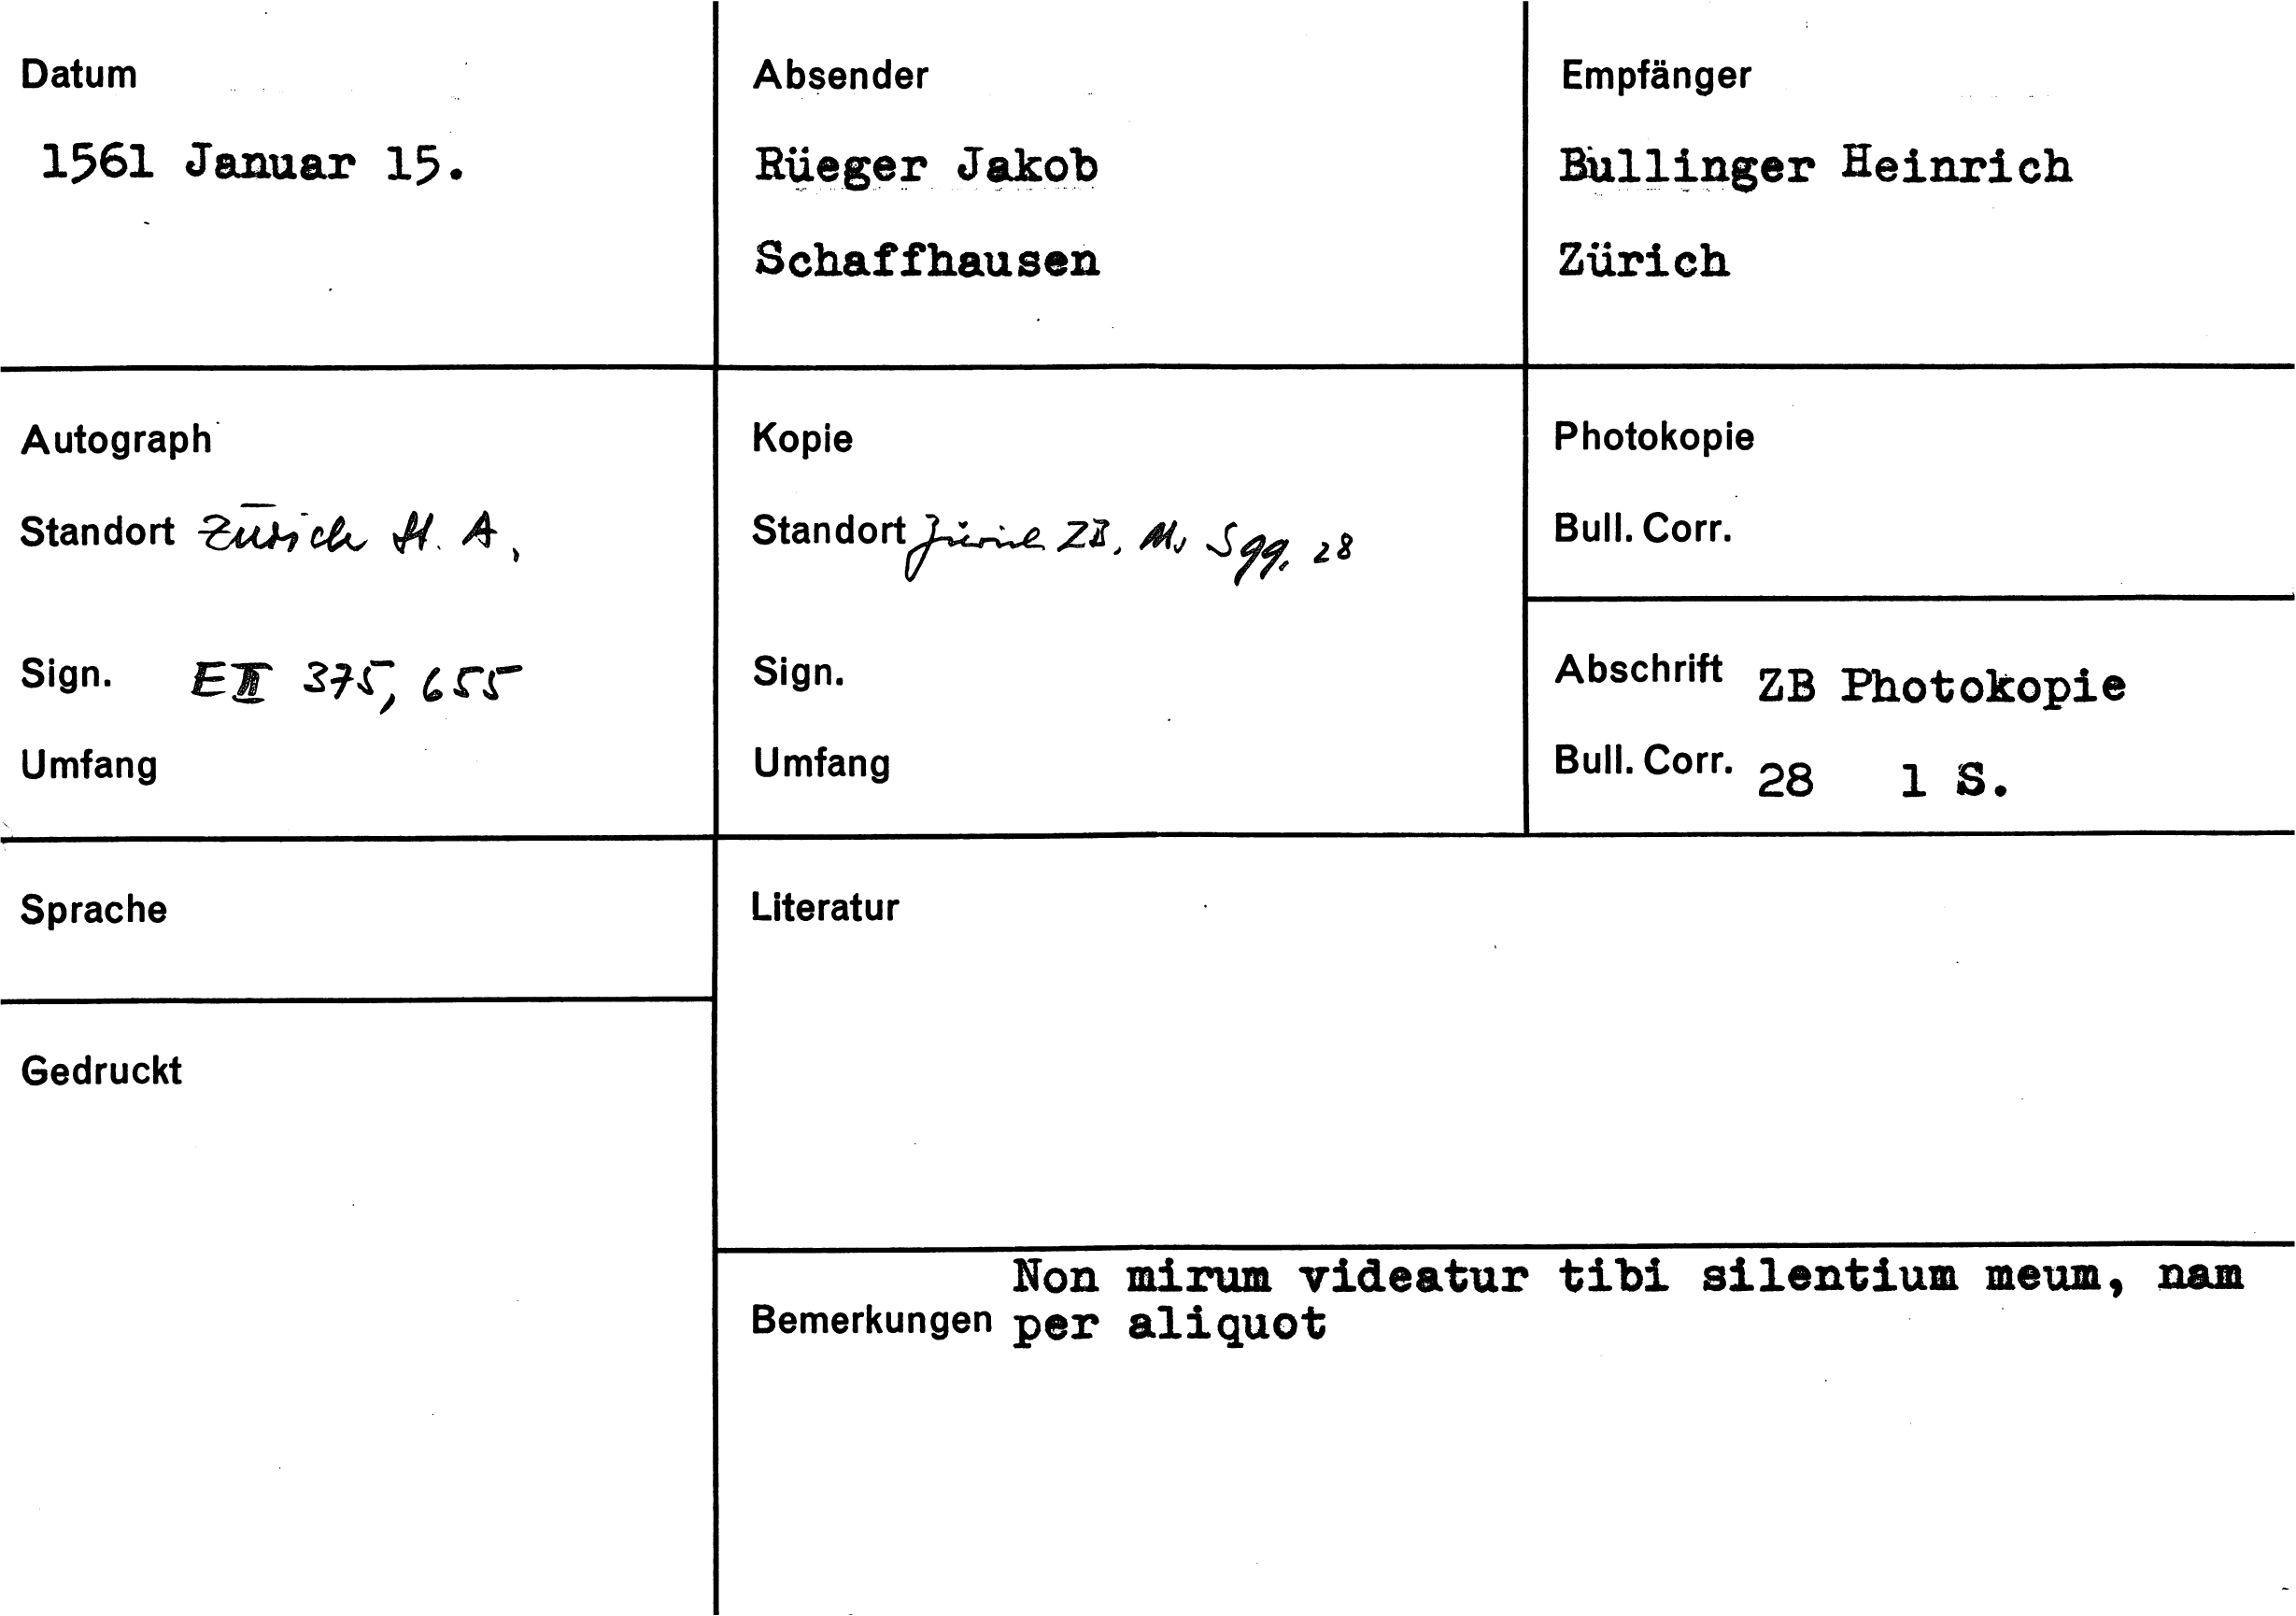 Datum
1561 Januar 15.
Absender
Rüeger Jakob
Schaffhausen
Empfänger
Bullinger Heinrich
Zürich
Autograph
Standort Zürich St. A,
Sign. E II 375, 655
Umfang
Kopie
Standort Zürich ZB, Ms S 99, 28
Sign.
Umfang
Photokopie
Bull. Corr.
Abschrift ZB Photokopie
Bull. Corr. 28 1 S.
Sprache
Literatur
Gedruckt
Non mirum videatur tibi silentium meum, nam
Bemerkungen per aliquot